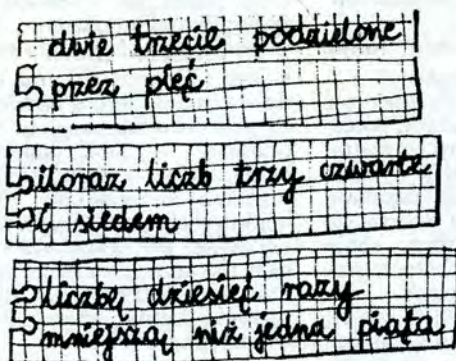 dwie trzecie podzielone
przez pięć
iloraz liczb trzy czwarte
i siedem
liczbę dziesięć razy
mniejszą niż jedna piąta